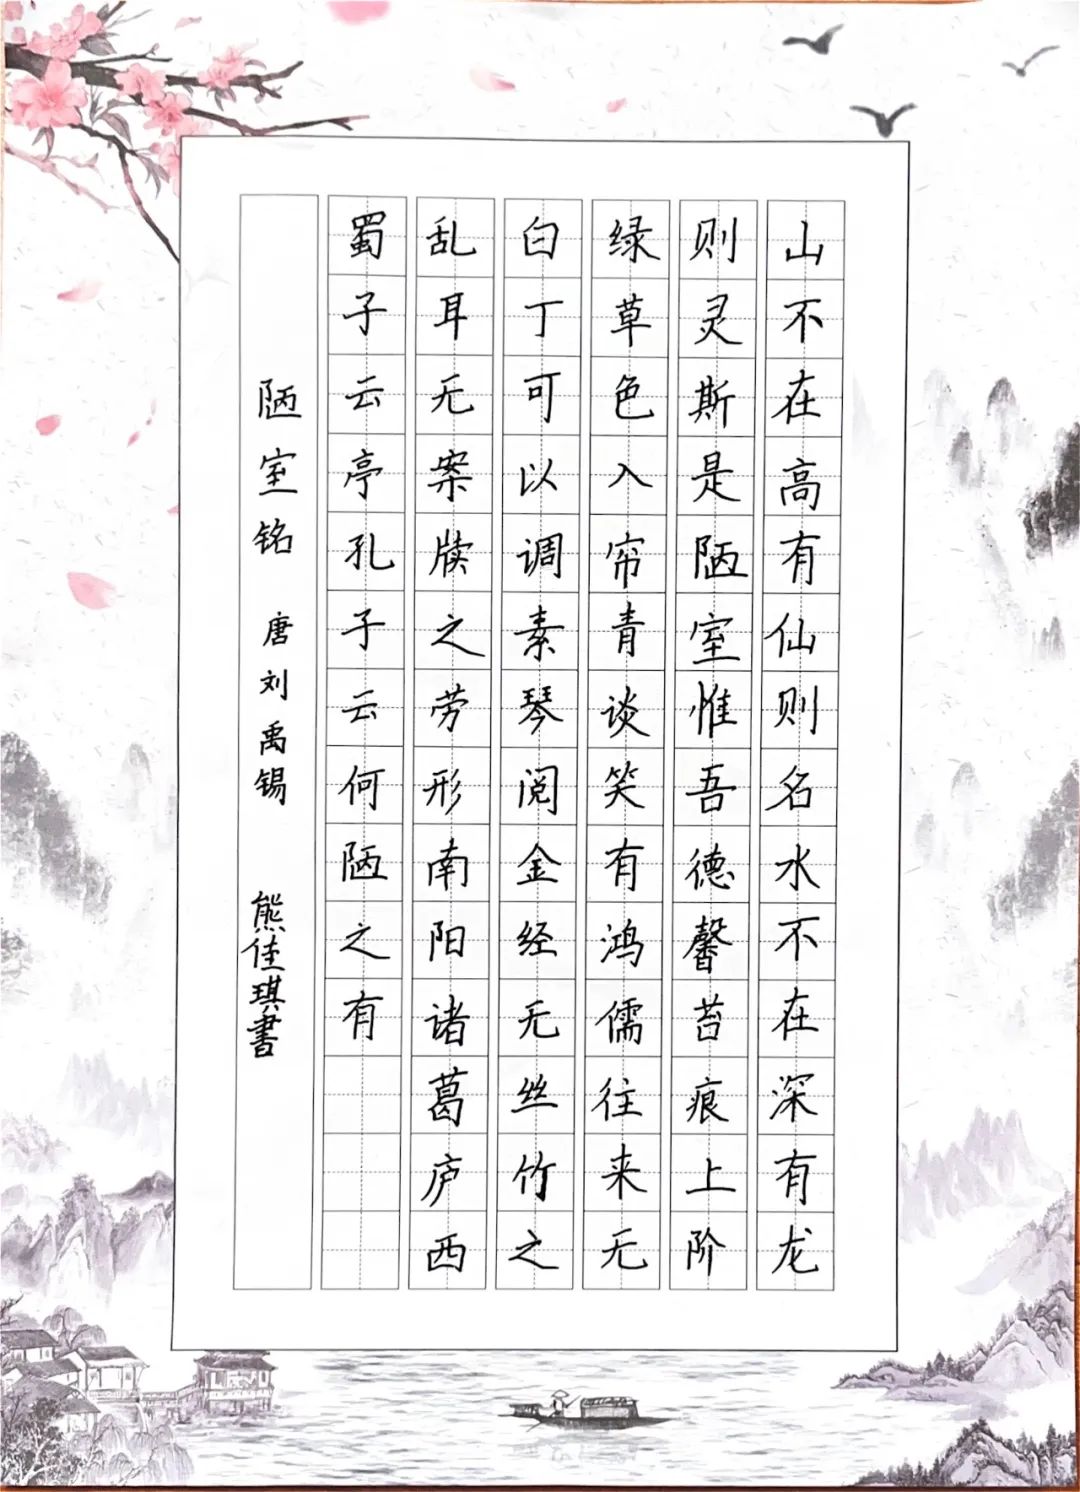 山不在高有仙则名水不在深有龙
则灵斯是陋室惟吾德馨苔痕上阶
绿草色入帘青谈笑有鸿儒往来无
白丁可以调素琴阅金经无丝竹之
乱耳无案牍之劳形南阳诸葛庐西
蜀子云亭孔子云何陋之有
陋室铭 唐刘禹锡 熊佳琪書